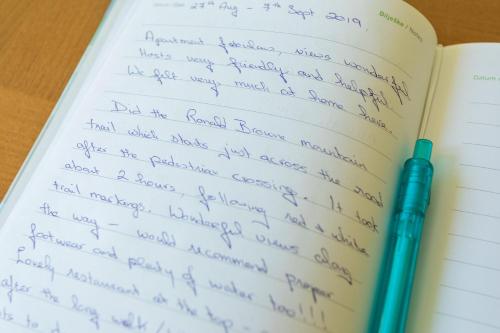 27th Aug - 7th Sept 2019.
Bilješke / Notes
Apartment fabulous, views wonderful
Hosts very friendly and helpful.
We felt very much at home here.
Did the Ronald Browne mountain
trail which starts just across the road
after the pedestrian crossing. It took
about 2 hours, following red & white
trail markings. Wonderful views along
the way - would recommend proper
footwear and plenty of water too!!!
Lovely restaurant at the top -
after the long walk /
Datum